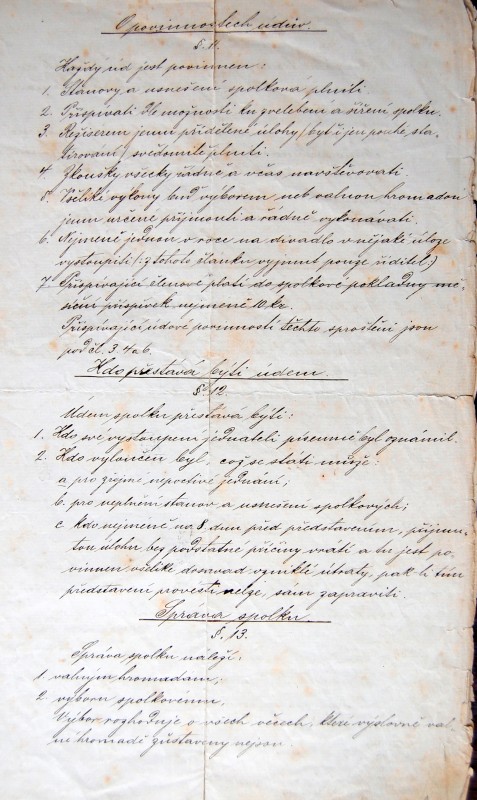 O povinnostech údův.
§. 11.
Každý úd jest povinnen:
1. Stanovy a usnešení spolková plniti.
2. Přispívati dle možnosti ku zvelebení a šíření spolku.
3. Režiserem jemu přidělené úlohy / byť i jen pouhé sta-
tirování / svědomitě plniti.
4. Zkoušky všecky řádně a včas navštěvovati.
5. Všeliké výkony buď výborem neb valnou hromadou
jemu určené přijmouti a řádně vykonávati.
6. Nejméně jednou v roce na divadle v nějaké úloze
vystoupiti (: z tohoto článku vyjmut pouze ředitel :)
7. Přispívající členové platí do spolkové pokladny mě-
síční příspěvek nejméně 10 kr.
Přispívající údové povinností těchto sproštěni jsou
pod čl. 3. 4 a 6.
Kdo přestává býti údem.
§. 12.
Údem spolku přestává býti:
1. Kdo své vystoupení jednateli písemně byl oznámil.
2. Kdo vyloučen byl, což se státi může:
a pro zřejmé nepoctivé jednání;
b. pro neplnění stanov a usnešení spolkových;
c kdo nejméně na 8. dnů před představením, přijmu-
tou úlohu bez podstatné příčiny vrátí a tu jest po-
vinnen všeliké dosavad vzniklé útraty, pak-li tím
představení provésti nelze, sám zapraviti.
Správa spolku.
§. 13.
Správa spolku náleží:
1 valným hromadám;
2 výboru spolkovému.
Výbor rozhoduje o všech věcech, které výslovně val-
né hromadě zůstaveny nejsou.